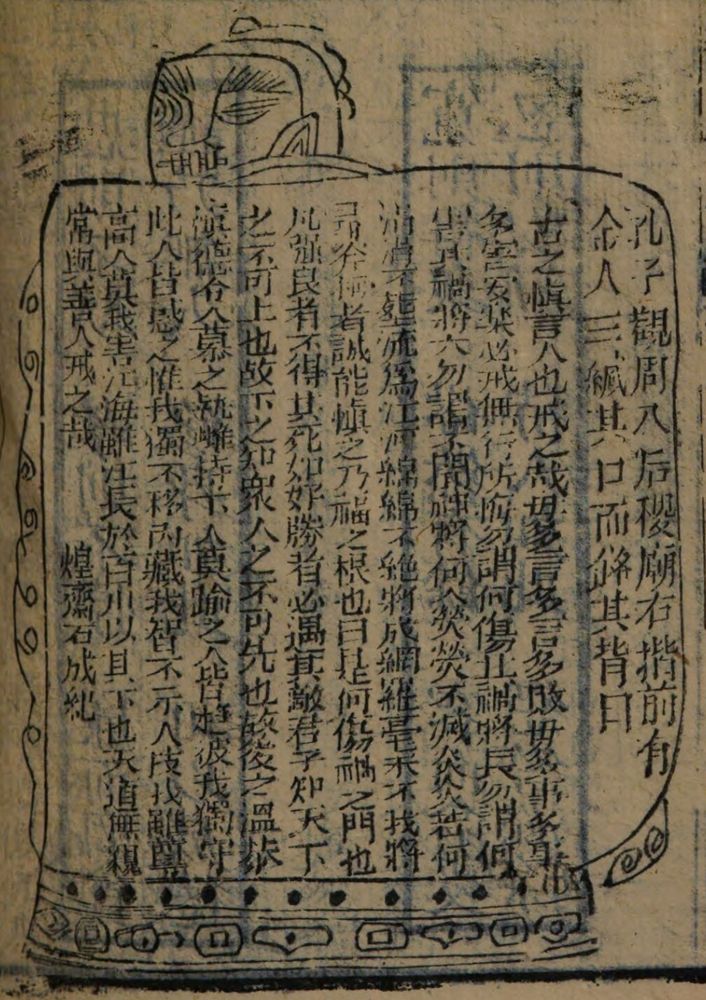 孔子觀周入后稷廟右揩前有
金人三緘其口而銘其背曰
古之慎言人也戒之哉毋多言多言多敗毋多事多事
多害安樂必戒無行所悔勿謂何傷其禍將長勿謂何
害其禍將大勿謂不聞神將伺人熒熒不滅炎炎若何
涓涓不壅終為江河綿綿不絕將成網羅毫末不扎將
尋斧柯者誠能慎之乃福之根也曰是何傷禍之門也
凡強良者不得其死如好勝者必遇其敵君子知天下
之不可上也故下之知衆人之不可先也故後之溫恭
慎德令人慕之執雌持下人莫踰之人皆趨彼我獨守
此人皆惑之惟我獨不移內藏我智不示人技我雖尊
高人莫我害江海雖左長於百川以其下也天道無親
常與善人戒之哉
煌齋石成紀